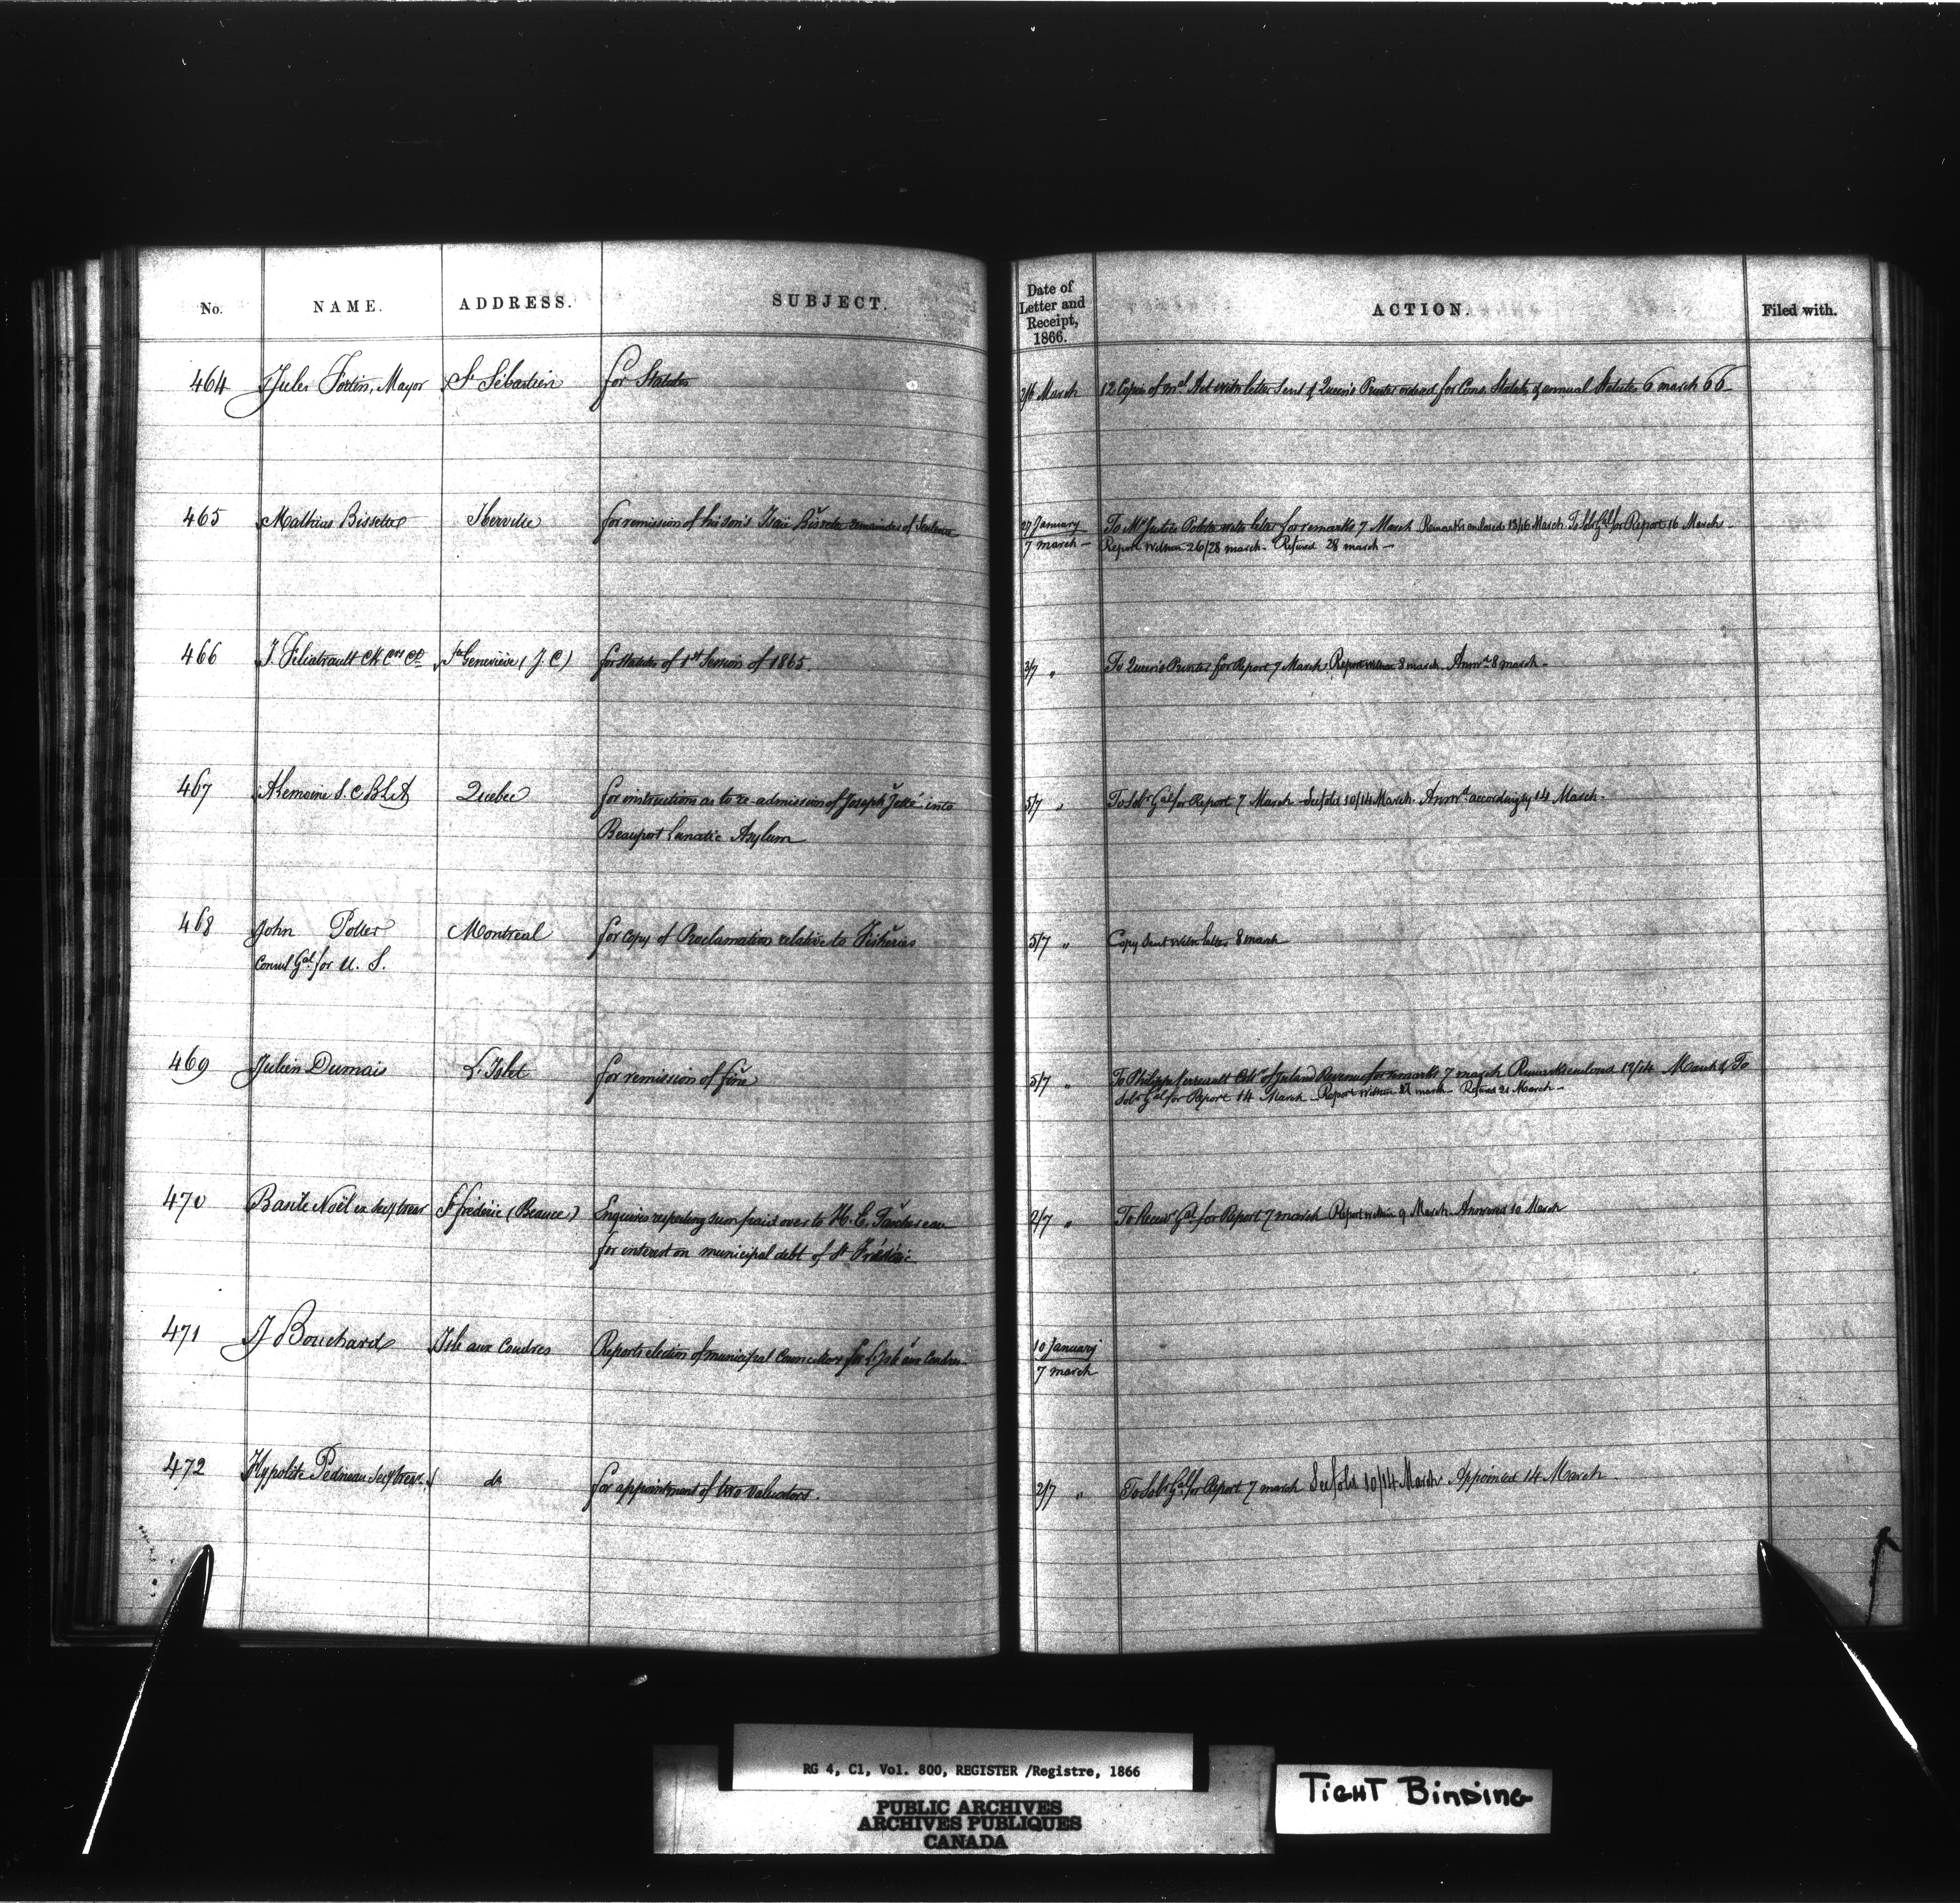 No. NAME. ADDRESS. SUBJECT. Date of Letter and Receipt, 1866. ACTION. Filed with.
464 Jules Fortin, Mayor St Sébastien for Statutes 2/6 March 12 Copies of Mal Act with letter Sent & Queen's Printer ordered for Cons. Statutes & annual Statutes 6 march 66
465 Mathias Bissette Iberville for remission of his son's Isaïe Bissette remainder of Sentence 27 January To Mr Justice Polette with letter for remarks 7 March Remarks enclosed 13/16 March. To Solr Gal for Report 16 March
7 march Report within 26/28 march. Refused 28 march
466 J. Filiatrault Ste Geneviève (J.C) for Statutes of 1st Session of 1865. 3/7 " To Queen's Printer for Report 7 March Report within 8 march. Answd 8 march
467 A Lemoine S. C B L A Quebec for instructions as to re-admission of Joseph Jetté into 5/7 " To Solr Gal for Report 7 March See fold 10/14 March. Answd accordingly 14 March.
Beauport Lunatic Asylum
468 John Potter Montreal for copy of Proclamation relative to Fisheries 5/7 " Copy Sent with letter 8 march
Consul Gal for U. S.
469 Julien Dumais L'Islet for remission of fine 5/7 " To Philippe Verreault Collr of Inland Revenue for remarks 7 march Remarks enclosed 12/14 March & To
Solr Gal for Report 14 March Report within 21 march Refused 21 March
470 Baste Noël ex Secy trear St fréderic (Beauce) Enquires respecting sum paid over to H. E. Taschereau 2/7 " To Receivr Gal for Report 7 march Report within 9 March Answered 10 March
for interest on municipal debt of St Fréderic
471 J Bouchard Isle aux Coudres Reports election of municipal Councillors for L'Isle aux Coudres 10 January
7 march
472 Hypolite Pedneau Secy trear do for appointment of two valuators. 2/7 " To Solr Gal for Report 7 march See fold 10/14 March Appointed 14 March.
RG 4, C1, Vol. 800, REGISTER /Registre, 1866
PUBLIC ARCHIVES
ARCHIVES PUBLIQUES
CANADA
TIGHT BINDING